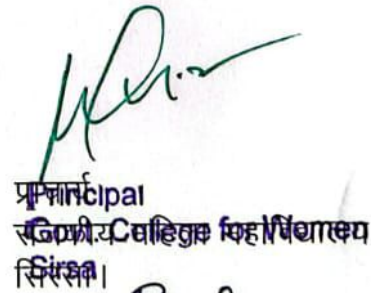 प्राचार्य
Principal
राजकीय महिला महाविद्यालय
Govt. College for Women
सिरसा।
Sirsa